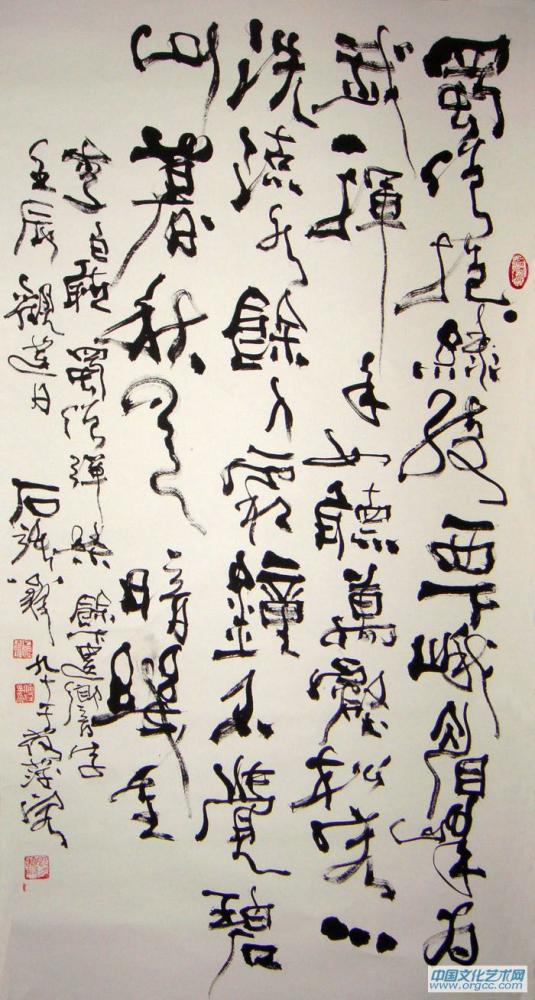 蜀僧抱綠綺西下峨眉峰为
我一揮手如聽萬壑松客心
洗流水餘入霜鐘不覺碧
山暮秋雲暗幾重
李白聽蜀僧彈琴 餘下遺響字
壬辰觀蓮日 石 九十
中国文化艺术网
www.orgcc.com